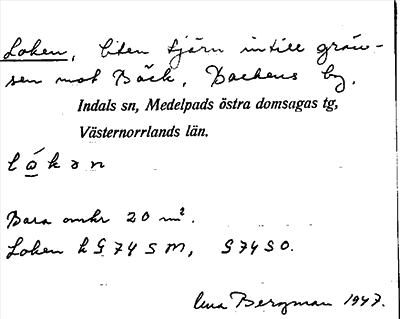 Loken, liten tjärn intill grän-
sen mot Bäck, Backens by.
Indals sn, Medelpads östra domsagas tg,
Västernorrlands län.
lǻkən
Bara omkr 20 m².
Loken k G 74 S M, G 74 S O.
Bergman 1947.